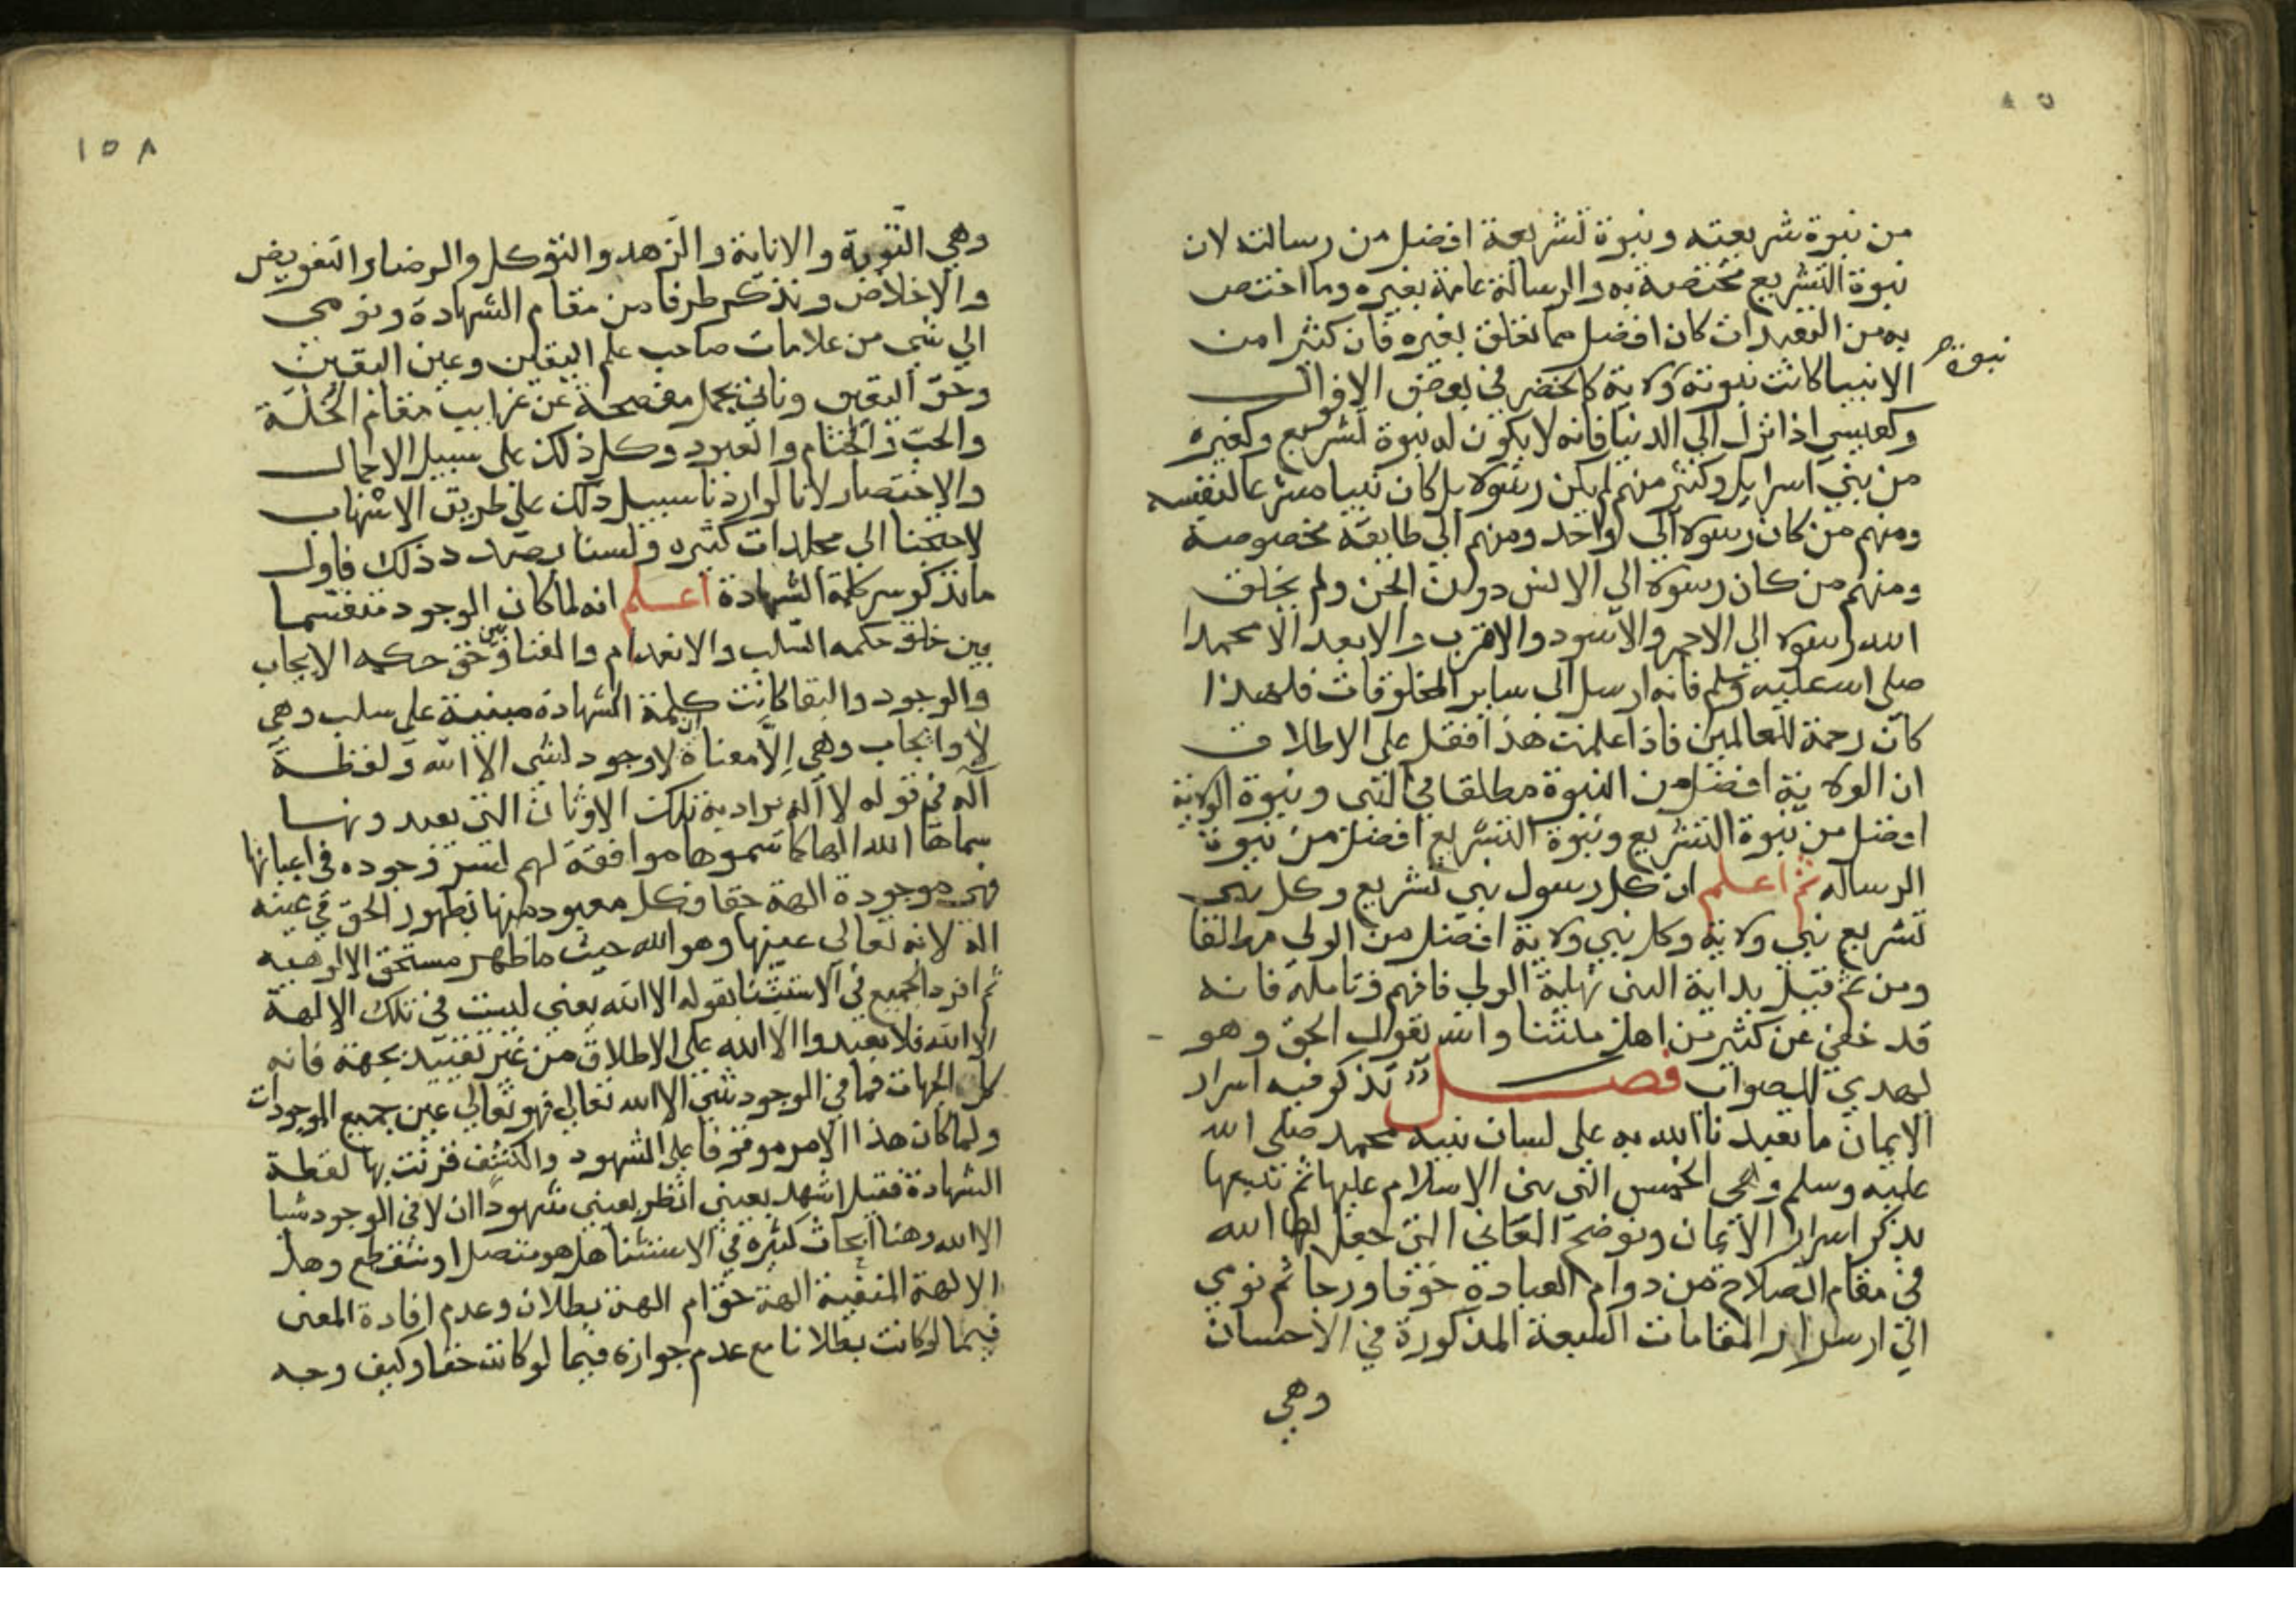 من نبوة شريعته ونبوة تشريعه افضل من رسالته لان
نبوة التشريع مختصة به والرسالة عامة بغيره وما اختص
به من التعبدات كان افضل مما تعلق بغيره فان كثيرا من
نبوة
الانبيا كانت نبوته ولاية كالخضر في بعض الاقوال
وكعيسي اذا نزل الي الدنيا فانه لا يكون له نبوة تشريع وكغيره
من بني اسرايل وكثير منهم لم يكن رسولا بل كان نبيا مشرعا لنفسه
ومنهم من كان رسولا الي واحد ومنهم الي طايفة مخصوصة
ومنهم من كان رسولا الي الانس دون الجن ولم يخلق
الله رسولا الي الاحمر والاسود والاقرب والابعد الا محمدا
صلي الله عليه وسلم فانه ارسل الي ساير المخلوقات فلهذا
كان رحمة للعالمين فاذا علمت هذا فقل علي الاطلاق
ان الولاية افضل من النبوة مطلقا في النبي ونبوة الولاية
افضل من نبوة التشريع ونبوة التشريع افضل من نبوة
الرساله ثم اعلم ان كل رسول نبي تشريع وكل نبي
تشريع نبي ولاية وكل نبي ولاية افضل من الولي مطلقا
ومن ثم قيل بداية النبي نهاية الولي فافهم وتامله فانه
قد خفي عن كثير من اهل ملتنا والله يقول الحق وهو
يهدي للصواب فصل نذكر فيه اسرار
الايمان ما تعبدنا الله به علي لسان نبيه محمد صلي الله
عليه وسلم وهي الخمس التي بني الاسلام عليها ثم نتبعها
بذكر اسرار الايمان ونوضح المعاني التي جعل لها الله
في مقام الصلاح من دوام العبادة خوفا ورجا ثم نومي
الي اسرار المقامات السبعة المذكورة في الاحسان
وهي
١٥٨
وهي التوبة والانابة والزهد والتوكل والرضا والتفويض
والاخلاص ونذكر طرفا من مقام الشهادة ونومي
الي شي من علامات صاحب علم اليقين وعين اليقين
وحق اليقين وناتي بجمل مفصحة عن غرايب مقام الخلة
والحب والختام والعبود وكل ذلك علي سبيل الاجمال
والاختصار لانا لو اردنا سبيل ذلك علي طريق الاسهاب
لاحتجنا الي مجلدات كثيره ولسنا بصدد ذلك فاول
ما نذكر سر كلمة الشهادة اعلم انه لما كان الوجود منقسما
بين خلق حكمه السلب والانعدام والفنا وبين حق حكمه الايجاب
والوجود والبقا كانت كلمة الشهادة مبنية علي سلب وهي
لا وايجاب وهي الا معناه لا وجود لشي الا الله ولفظة
اله في قوله لا اله يراد به تلك الاوثان التي يعبدونها
سماها الله الها كما سموها موافقة لهم لسر وجوده في اعيانها
فهي موجودة الهة حقا وكل معبود منها بظهور الحق في عينه
اله لانه تعالي عينها وهو الله حيث ما ظهر مستحق الالوهيه
ثم افرد الجميع في الاستثنا بقوله الا الله يعني ليست في تلك الالهة
الا الله فلا تعبدوا الا الله علي الاطلاق من غير تقييد بجهة فانه
كل الجهات فما في الوجود شي الا الله تعالي فهو تعالي عين جميع الموجودات
ولما كان هذا الامر موقوفا علي الشهود والكشف قرنت بها لفظة
الشهادة فقيل اشهد يعني انظر بعيني شهودا ان لا في الوجود شيا
الا الله وهنا ابحاث كثيرة في الاستثنا هل هو متصل او منقطع وهل
الالهة المنفية الهة حق ام الهة بطلان وعدم افادة المعني
فيما لو كانت بطلانا مع عدم جوازه فيما لو كانت حقا وكيف وجه